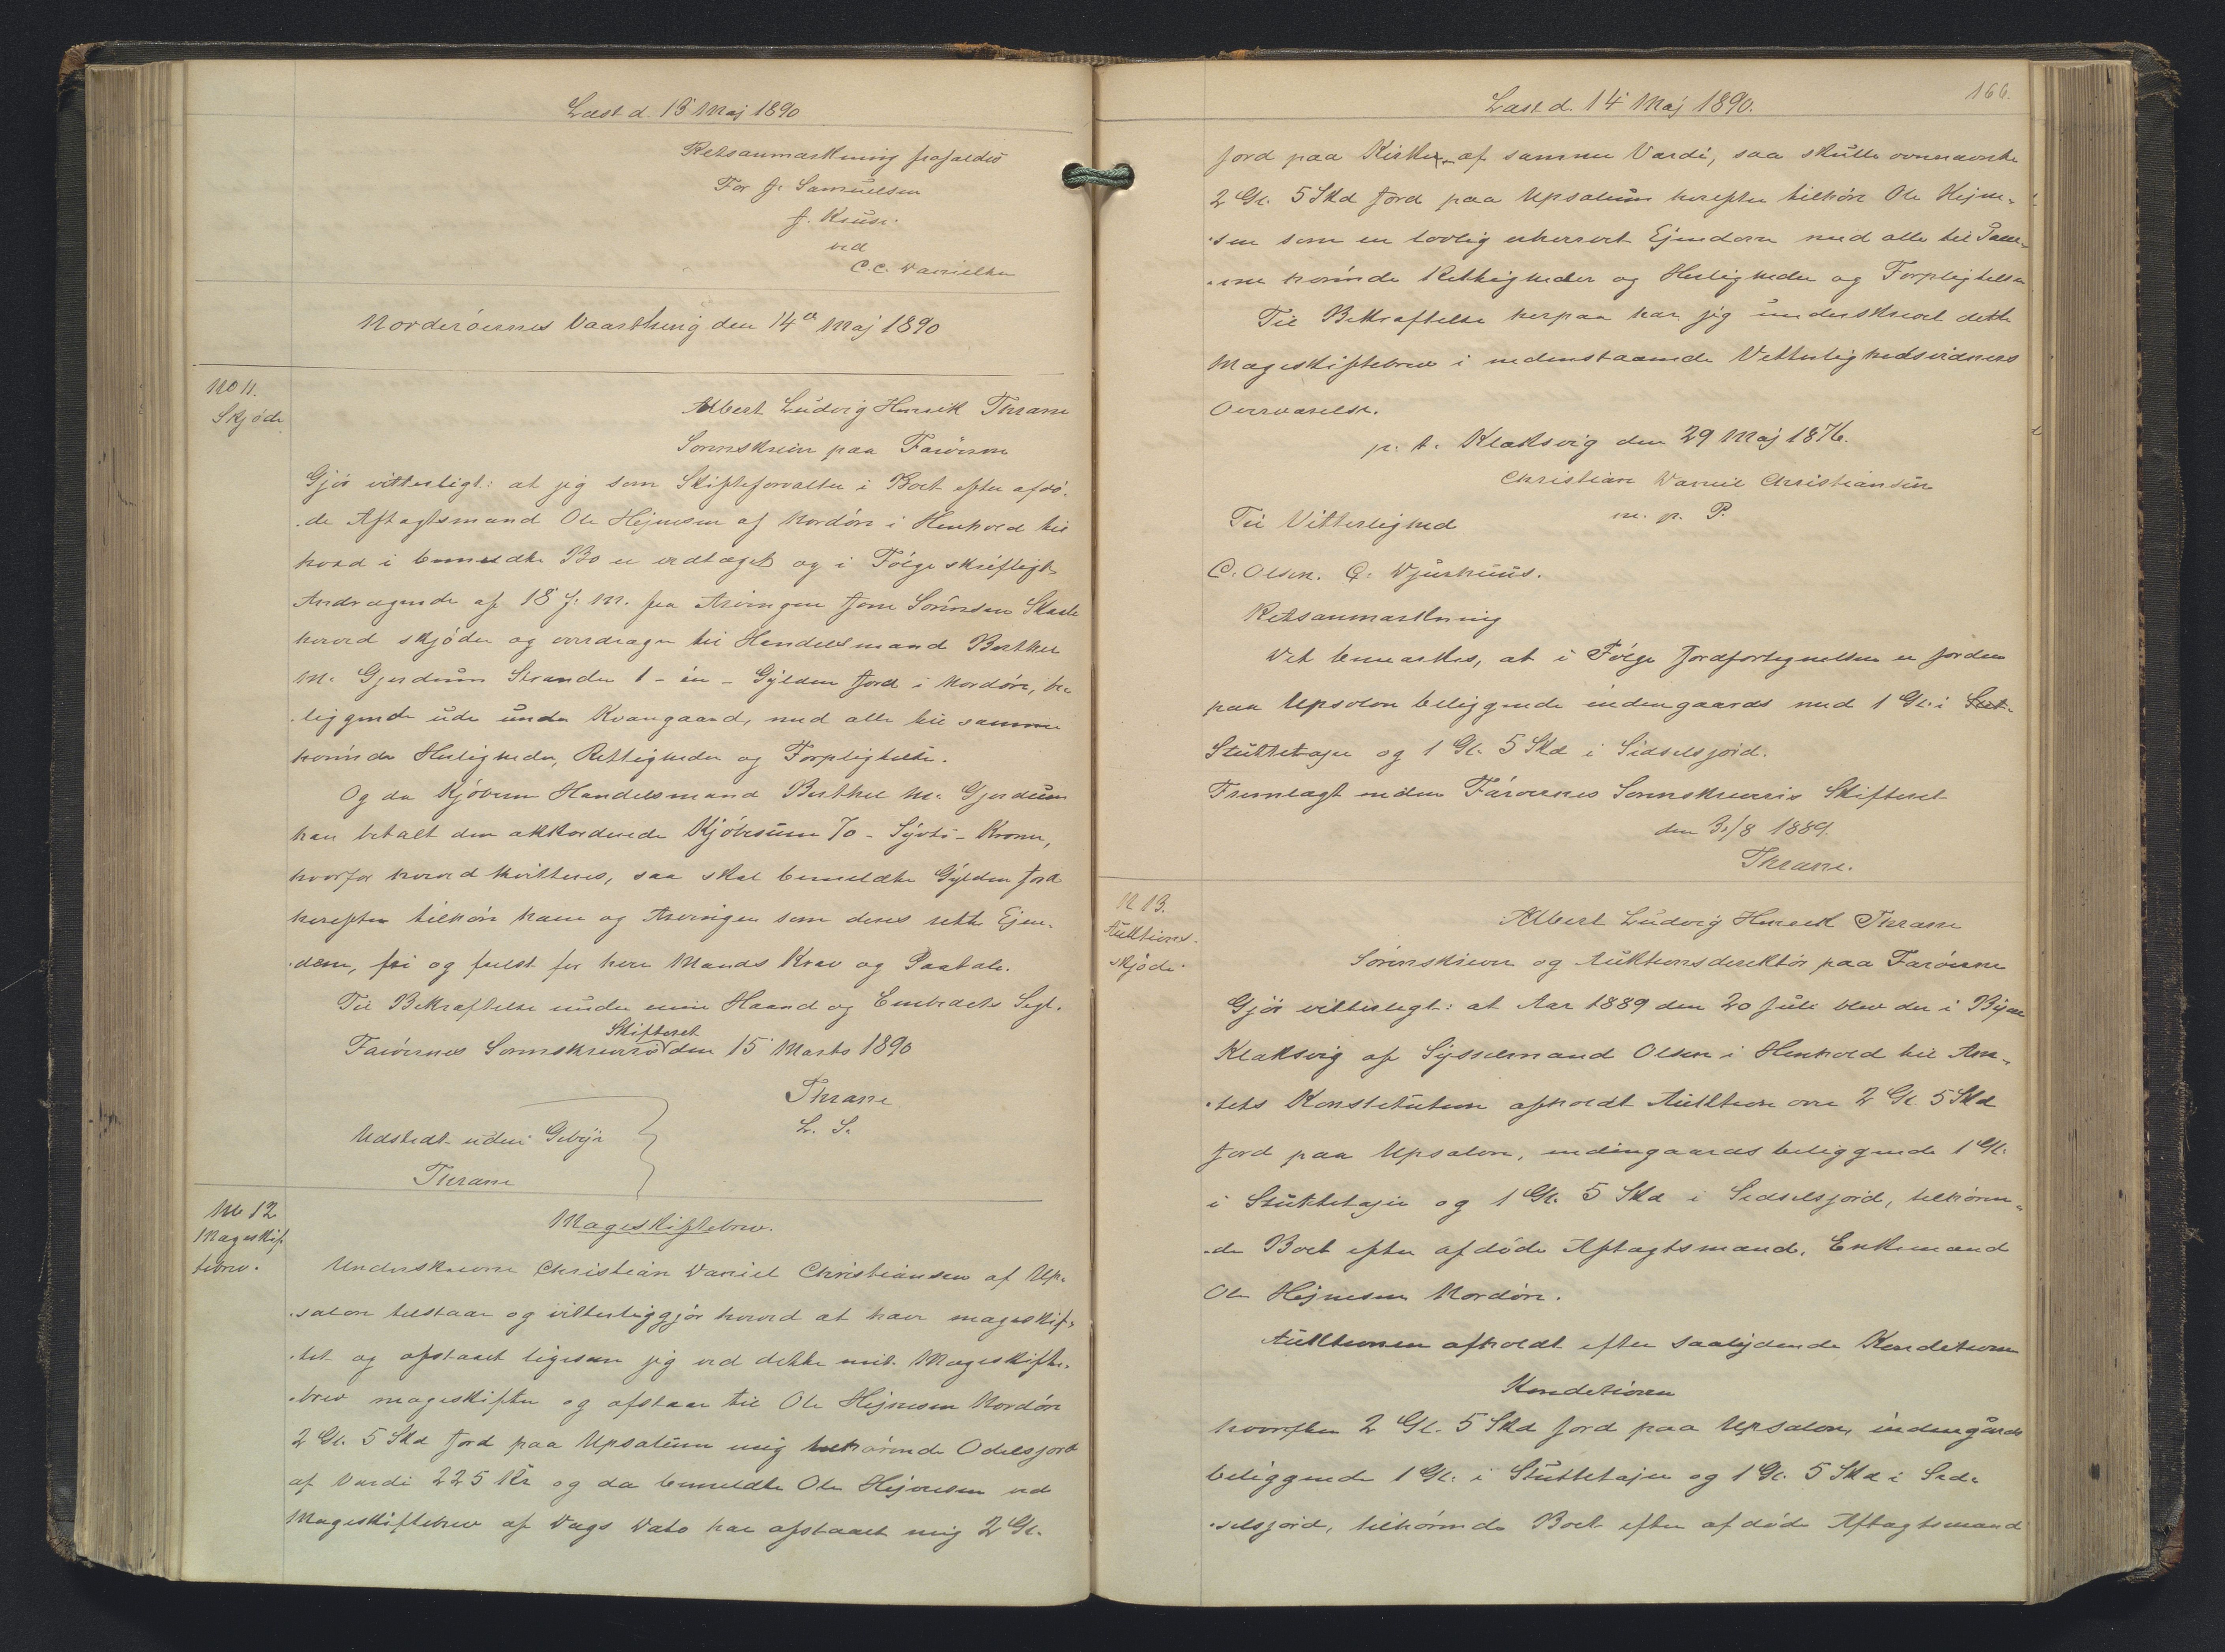 Læst d. 13 Maj 1890
Retsanmærkning frafaldes
For J. Samuelsen
J. Kruse.
ved
C. C. Danielsen
Norderøernes Vaarthing den 14de Maj 1890
No 11.
Skjøde
Albert Ludvig Henrik Thrane
Sorenskriver paa Færøerne
Gjør vitterligt: at jeg som Skifteforvalter i Boet efter afdø-
-de Aftagtsmand Ole Hejnesen af Nordøre i Henhold til
hvad i bemeldte Bo er vedtaget og i Følge skriftligt
Andragende af 18 f. M. fra Arvingen Jone Sørensen Skaale
herved skjøder og overdrager til Handelsmand Berthel
M. Gjerdum Strander 1 - én - Gylden Jord i Nordøre, be-
-liggende ude under Kvangaard, med alle til samme
hørende Herligheder, Rettigheder og Forpligtelser.
Og da Kjøberen Handelsmand Berthel M. Gjerdum
har betalt den akkorderede Kjøbesum 70 - Syvti - Kroner,
hvorfor herved kvitteres, saa skal bemeldte Gylden Jord
herefter tilhøre ham og Arvinger som deres rette Ejen-
-dom, fri og frelst for hver Mands Krav og Paatale.
Til Bekræftelse under min Haand og Embedets Segl.
Færøernes Sorenskriveris Skifteret den 15 Marts 1890
Thrane
L. S.
Udstedt uden Gebyr
Thrane
No 12
Mageskif-
tebrev.
Mageskiftebrev.
Underskrevne Christian Daniel Christiansen af Up-
-salon tilstaar og vitterliggjør herved at have mageskif-
-tet og afstaaet ligesom jeg ved dette mit Mageskifte-
-brev mageskifter og afstaar til Ole Hejnesen Nordøre
2 Gl. 5 Skd Jord paa Upsalum mig tilhørende Odelsjord
af Værdi 225 Kr og da bemeldte Ole Hejnesen ved
Mageskiftebrev af Dags Dato har afstaaet mig 2 Gl.
Læst d. 14 Maj 1890.
166.
Jord paa Kirke af samme Værdi, saa skulle ovennævnte
2 Gl. 5 Skd Jord paa Upsalum herefter tilhøre Ole Hejne-
-sen som en lovlig erhvervet Ejendom med alle til Samme
hørende Rettigheder og Herligheder og Forpligtelser
Til Bekræftelse herpaa har jeg underskrevet dette
Mageskiftebrev i nedenstaaende Vitterlighedsvidners
Overværelse.
p. t. Klaksvig den 29 Maj 1876.
Christian Daniel Christiansen
m. p. P.
Til Vitterlighed
C. Olsen. G. Djurhuus.
Retsanmærkning
Det bemærkes, at i Følge Jordfortegnelsen er Jorden
paa Upsolon beliggende indengaards med 1 Gl. i
Stuttetajer og 1 Gl. 5 Skd i Sidselsjord.
Fremlagt inden Færøernes Sorenskriveris Skifteret
den 30/8 1889.
Thrane.
N 13.
Auktions-
skjøde.
Albert Ludvig Henrik Thrane
Sorenskriver og Auktionsdirektør paa Færøerne
Gjør vitterlegt: at Aar 1889 den 20 Juli blev der i Bygden
Klaksvig af Sysselmand Olsen i Henhold til Am-
-tets Konstitution afholdt Auktion over 2 Gl 5 Skd
Jord paa Upsalon, indengaards beliggende 1 Gl.
i Stuttetajer og 1 Gl. 5 Skd i Sidselsjord, tilhøren-
-de Boet efter afdøde Aftagtsmand, Enkemand
Ole Hejnesen Nordøre.
Auktionen afholdt efter saalydende Kondition
Konditioner
hvorefter 2 Gl. 5 Skd Jord paa Upsalon, indengårds
beliggende 1 Gl. i Stuttetajer og 1 Gl. 5 Skd i Sid-
-selsjord, tilhørende Boet efter afdøde Aftagtsmand